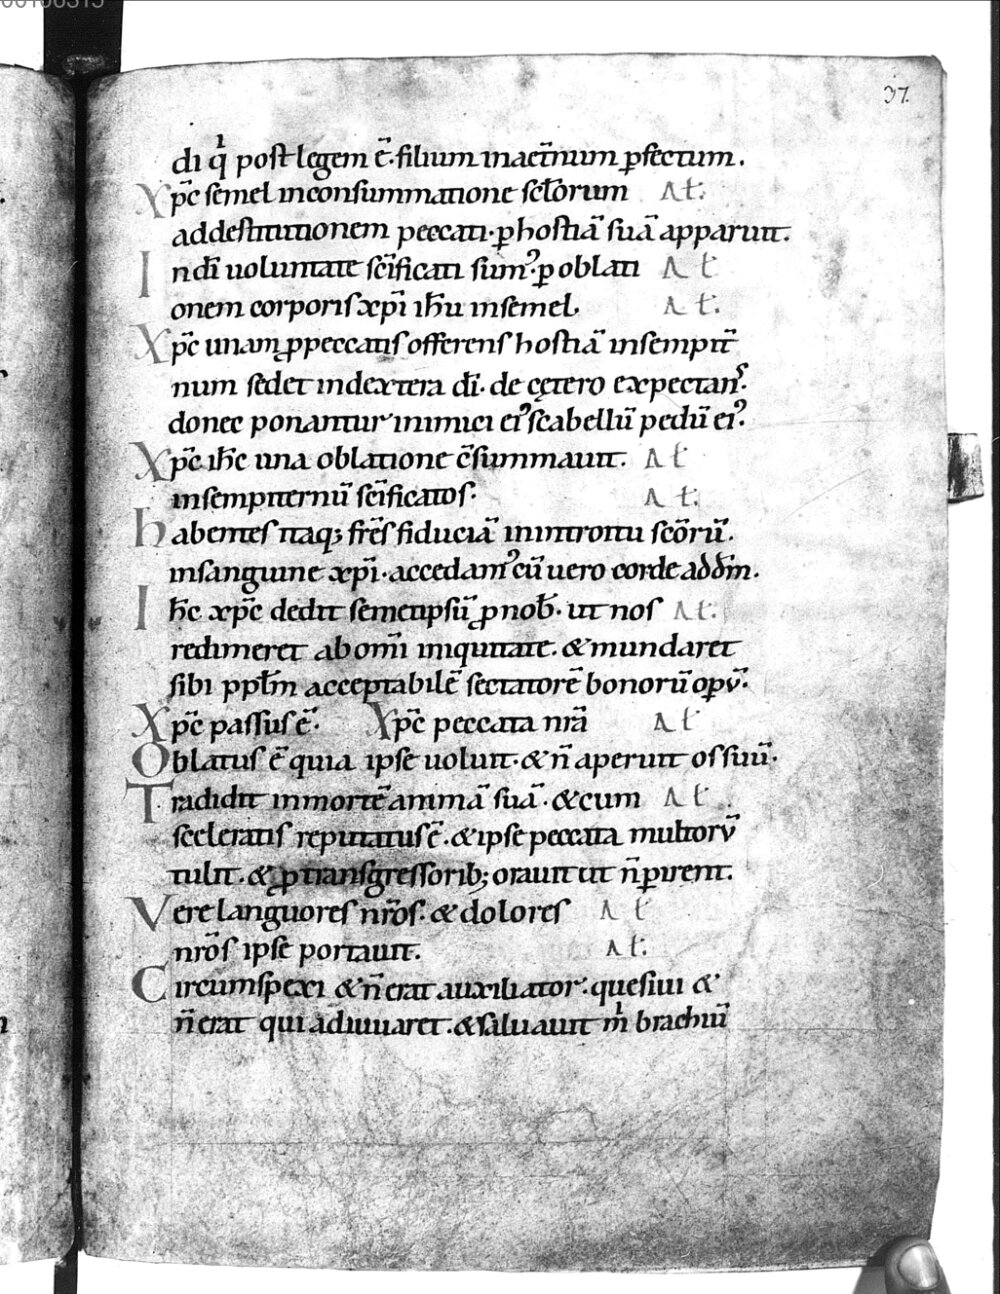 37.
di qͥ post legem ē· filium inaet̄num ꝑfectum.
Xp̄c semel inconsummatione sc̄lorum A t̄.
addestitutionem peccati· ꝑ hostiā suā apparuit.
Indī uoluntate sc̄ificati sumꝰ· ꝑ oblati A t̄
onem corporis xp̄i ih̄u insemel. A t̄.
Xp̄c unam ꝓpeccatis offerens hostiā insempit̄
num sedet indextera dī· de cętero expectanſ·
donec ponantur inimici eiꝰ scabellū pedū eiꝰ.
Xp̄c ih̄c una oblatione c̄summauit. A t̄
insempiternū sc̄ificatos· A t̄.
habentes itaq; fr̄es fiduciā inintroitu sc̄orū.
insanguine xp̄i· accedamꝰ cū uero corde addn̄m.
Ih̄c xp̄c dedit semetipsū ꝓnob̄· ut nos A t̄.
redimeret abom̄i iniquitate. & mundaret
sibi ppl̄m acceptabilē sectatorē bonorū opv̄·
Xp̄c passus ē· Xp̄c peccata nr̄a A t̄
Oblatus ē quia ipse uoluit· & n̄ aperuit os suū·
Tradidit inmortē animā suā· & cum A t̄.
sceleratis reputatus ē· & ipse peccata multorv̄
tulit· & ꝓ transgressorib; orauit ut n̄ ꝑirent.
Vere languores nr̄os· & dolores A t̄
nr̄os ipse portauit. A t̄.
Circumspexi & n̄ erat auxiliator· quesiui &
n̄ erat qui adiuuaret· & saluauit mͥ brachiū